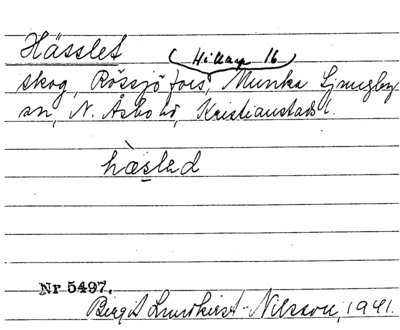 Hässlet
(Hillarp 16)
skog, Rössjö fors, Munka Ljungby
sn, N. Åsbo hd, Kristianstads l.
hæsled
Nr 5497.
Birgit Lundkvist-Nilsson, 1941.